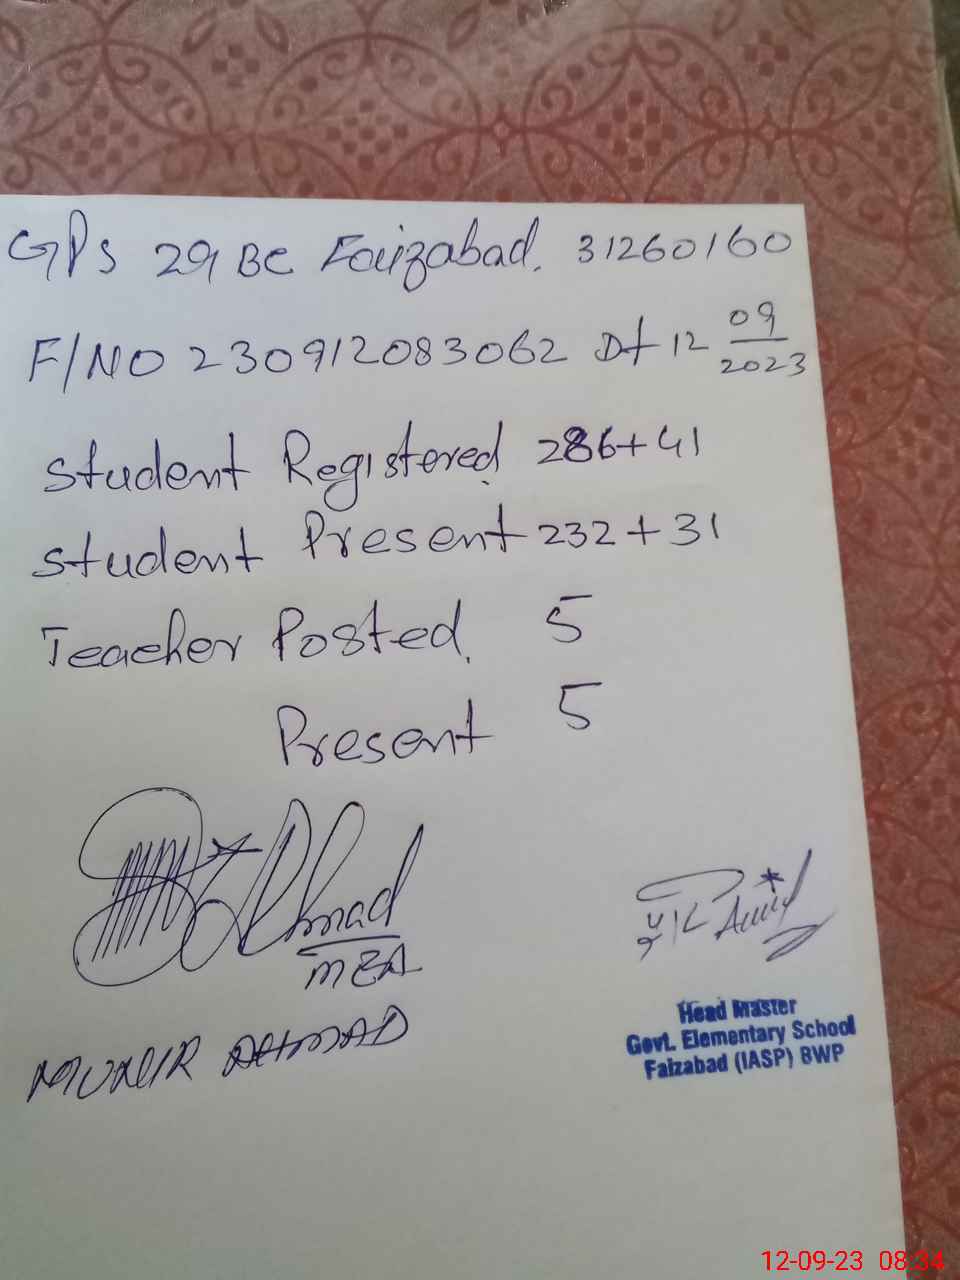 GPS 29 BC Faizabad. 31260160
F/NO 230912083062 Dt 12 09/2023
Student Registered 286+41
Student Present 232+31
Teacher Posted. 5
Present 5
Ahmad
MEA
MUNIR AHMAD
Head Master
Govt. Elementary School
Faizabad (IASP) BWP
12-09-23 08:34